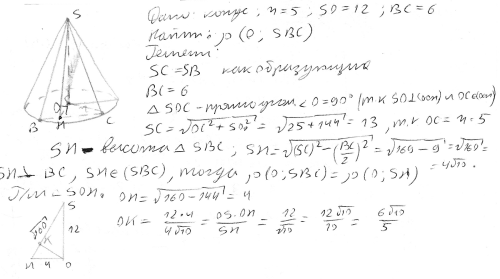 S
B
H
C
Дано: конус; r=5; SO=12; BC=6
Найти: ρ(O; SBC)
Решение:
SC=SB как образующие
BC=6
△SOC – прямоуг. ∠O=90° (т.к SO⊥(осн) и OC∈(осн)
SC = √(OC²+SO²) = √(25+144) = 13, т.к OC=r=5
SH – высота △SBC; SH = √((SC)²-(BC/2)²) = √(169-9) = √160 =
= 4√10.
SH⊥BC, SH∈(SBC), тогда ρ(O;SBC)=ρ(O;SH)
OH = √(160-144) = 4
OK = 12·4/4√10 = OS·OH/SH = 12/√10 = 12√10/10 = 6√10/5
S
√160
12
K
H 4 O